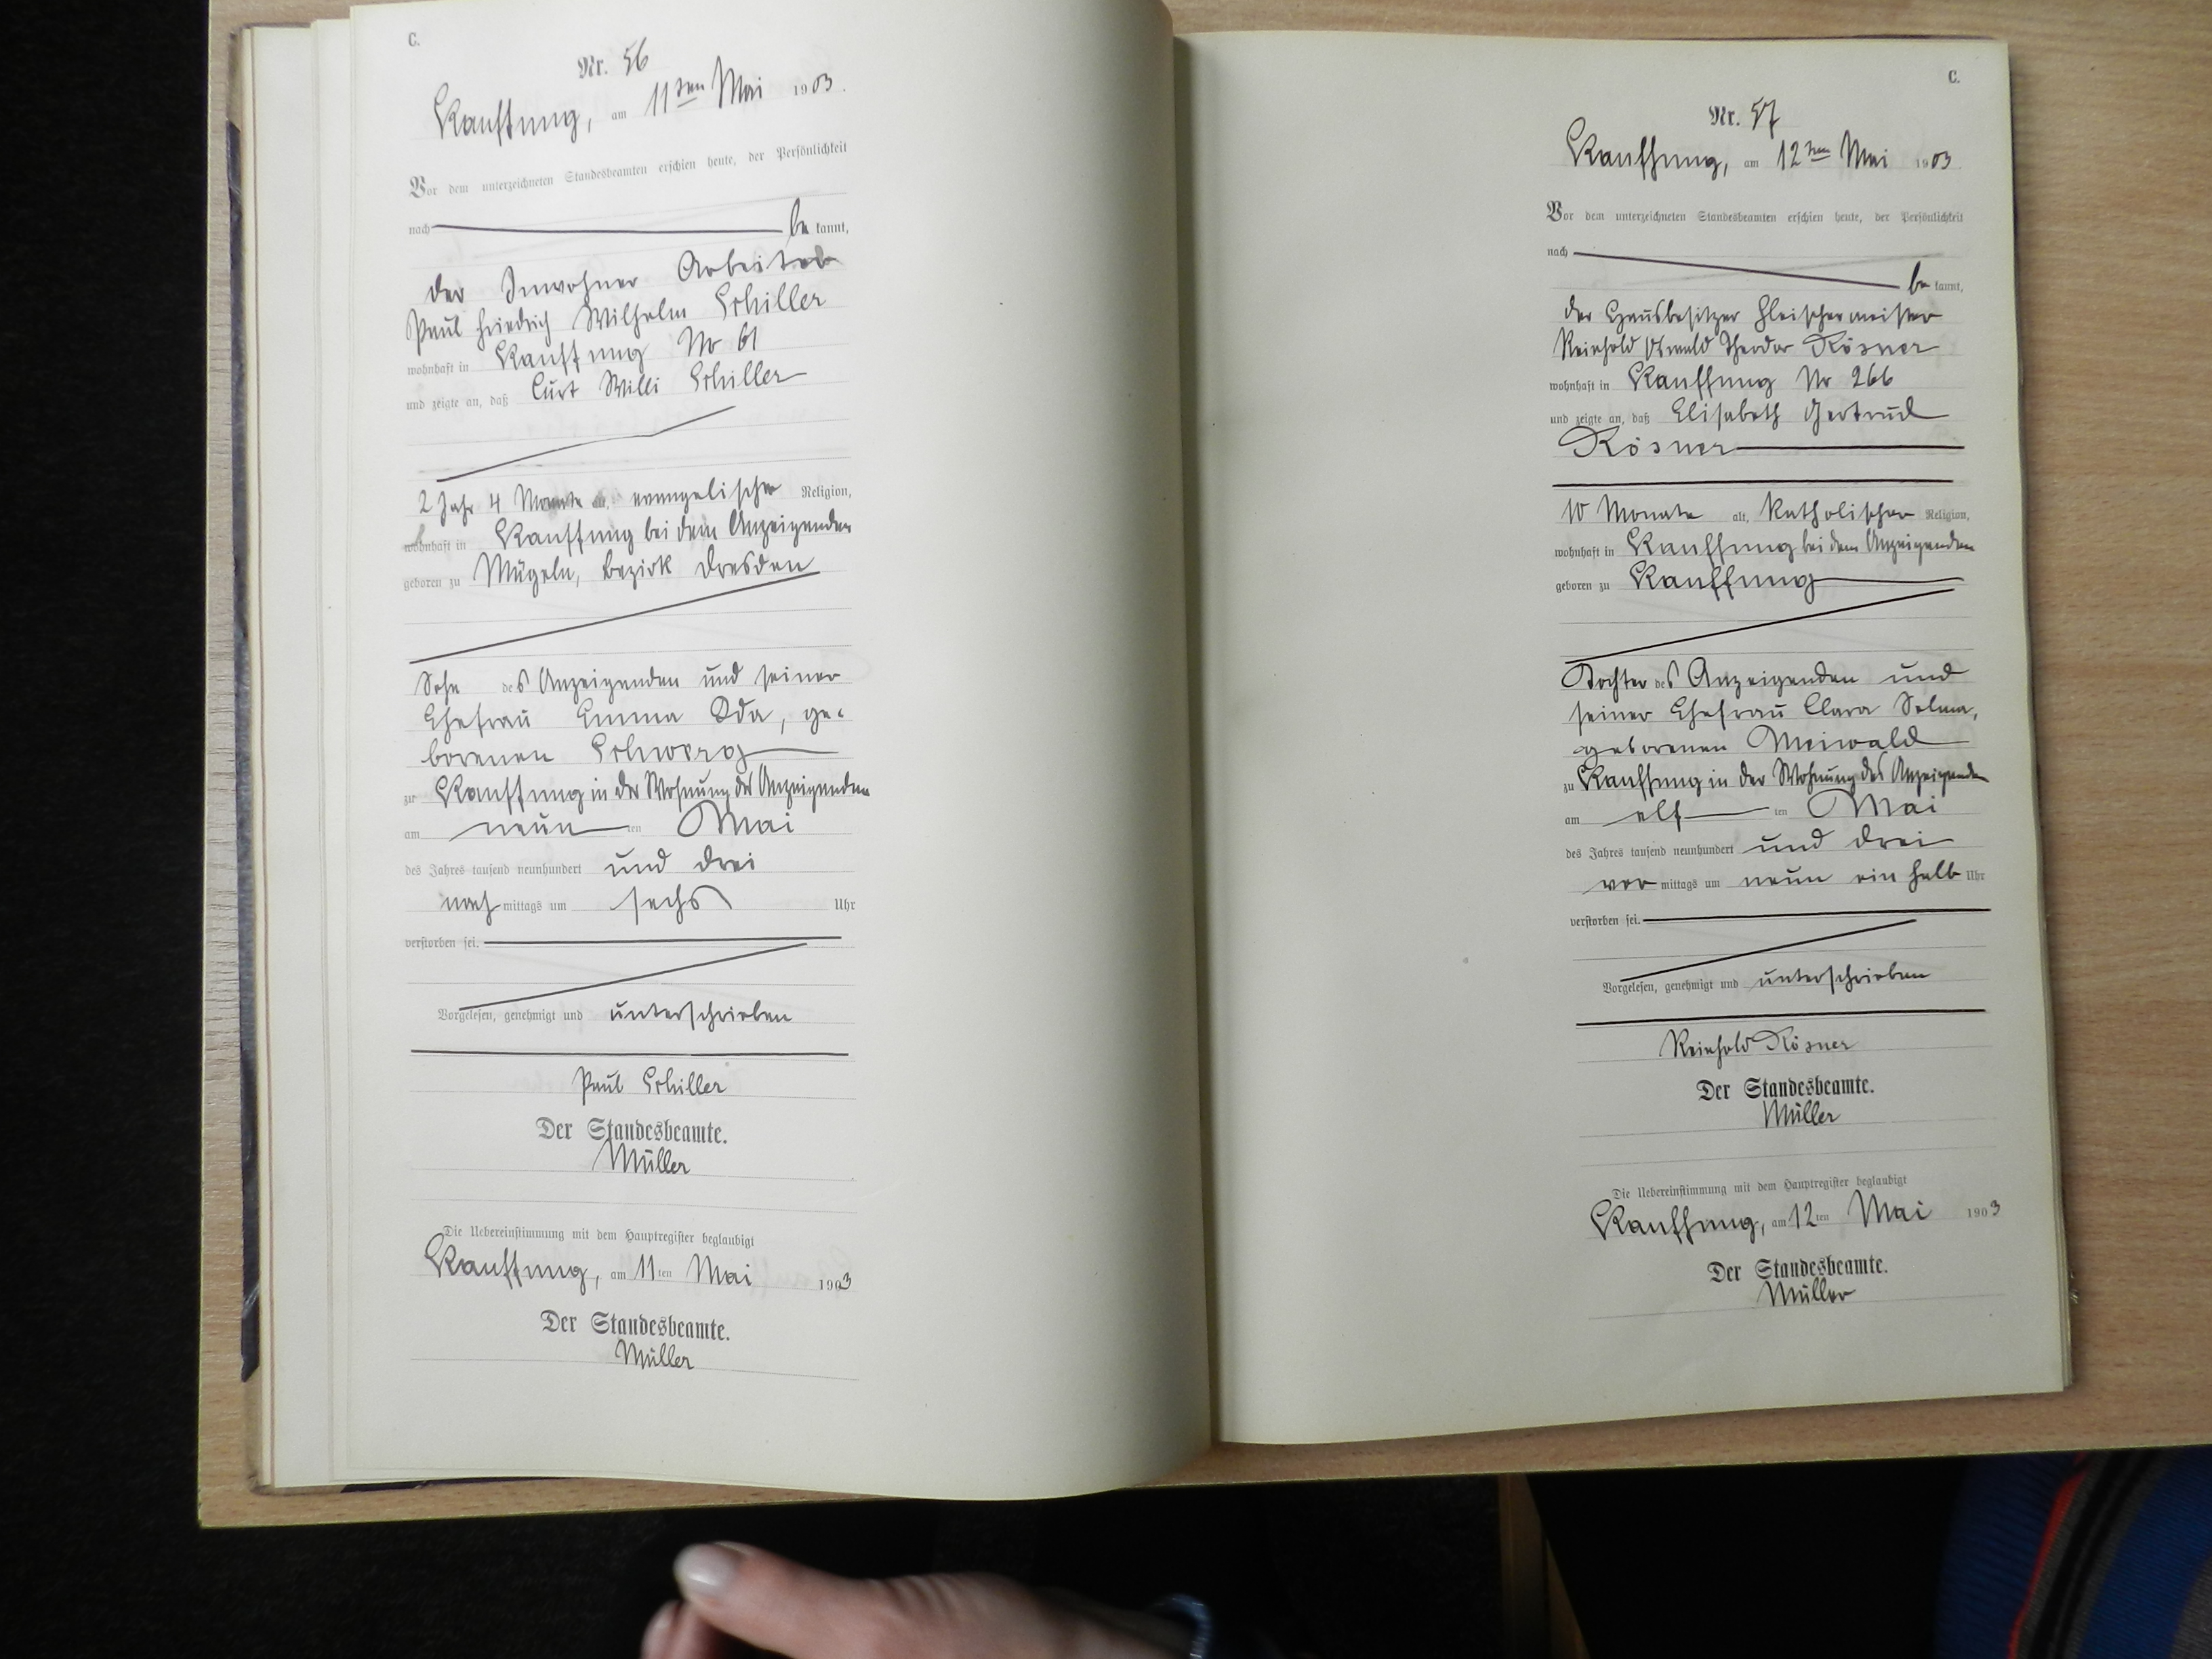 C.
Nr. 56
Kauffung, am 11ten Mai 1903.
Vor dem unterzeichneten Standesbeamten erschien heute, der Persönlichkeit
nach be kannt,
der Inwohner Arbeiter
Paul Friedrich Wilhelm Schiller
wohnhaft in Kauffung No 61
und zeigte an, daß Curt Willi Schiller
2 Jahr 4 Monate alt, evangelischer Religion,
wohnhaft in Kauffung bei dem Anzeigenden
geboren zu Mügeln, Bezirk Dresden
Sohn des Anzeigenden und seiner
Ehefrau Emma Ida, ge-
borenen
zu Kauffung in der Wohnung des Anzeigenden
am neun ten Mai
des Jahres tausend neunhundert und drei
nach mittags um sechs Uhr
verstorben sei.
Vorgelesen, genehmigt und unterschrieben
Paul Schiller
Der Standesbeamte.
Müller
Die Uebereinstimmung mit dem Hauptregister beglaubigt
Kauffung, am 11ten Mai 1903
Der Standesbeamte.
Müller
C.
Nr. 57
Kauffung, am 12ten Mai 1903
Vor dem unterzeichneten Standesbeamten erschien heute, der Persönlichkeit
nach be kannt,
der Hausbesitzer Fleischermeister
Reinhold Oswald Theodor Rösner
wohnhaft in Kauffung No 266
und zeigte an, daß Elisabeth Gertrud
Rösner
10 Monate alt, katholischer Religion,
wohnhaft in Kauffung bei dem Anzeigenden
geboren zu Kauffung
Tochter des Anzeigenden und
seiner Ehefrau Clara Selma,
geborenen Meiwald
zu Kauffung in der Wohnung des Anzeigenden
am elf ten Mai
des Jahres tausend neunhundert und drei
vor mittags um neun ein halb Uhr
verstorben sei.
Vorgelesen, genehmigt und unterschrieben
Reinhold Rösner
Der Standesbeamte.
Müller
Die Uebereinstimmung mit dem Hauptregister beglaubigt
Kauffung, am 12ten Mai 1903
Der Standesbeamte.
Müller